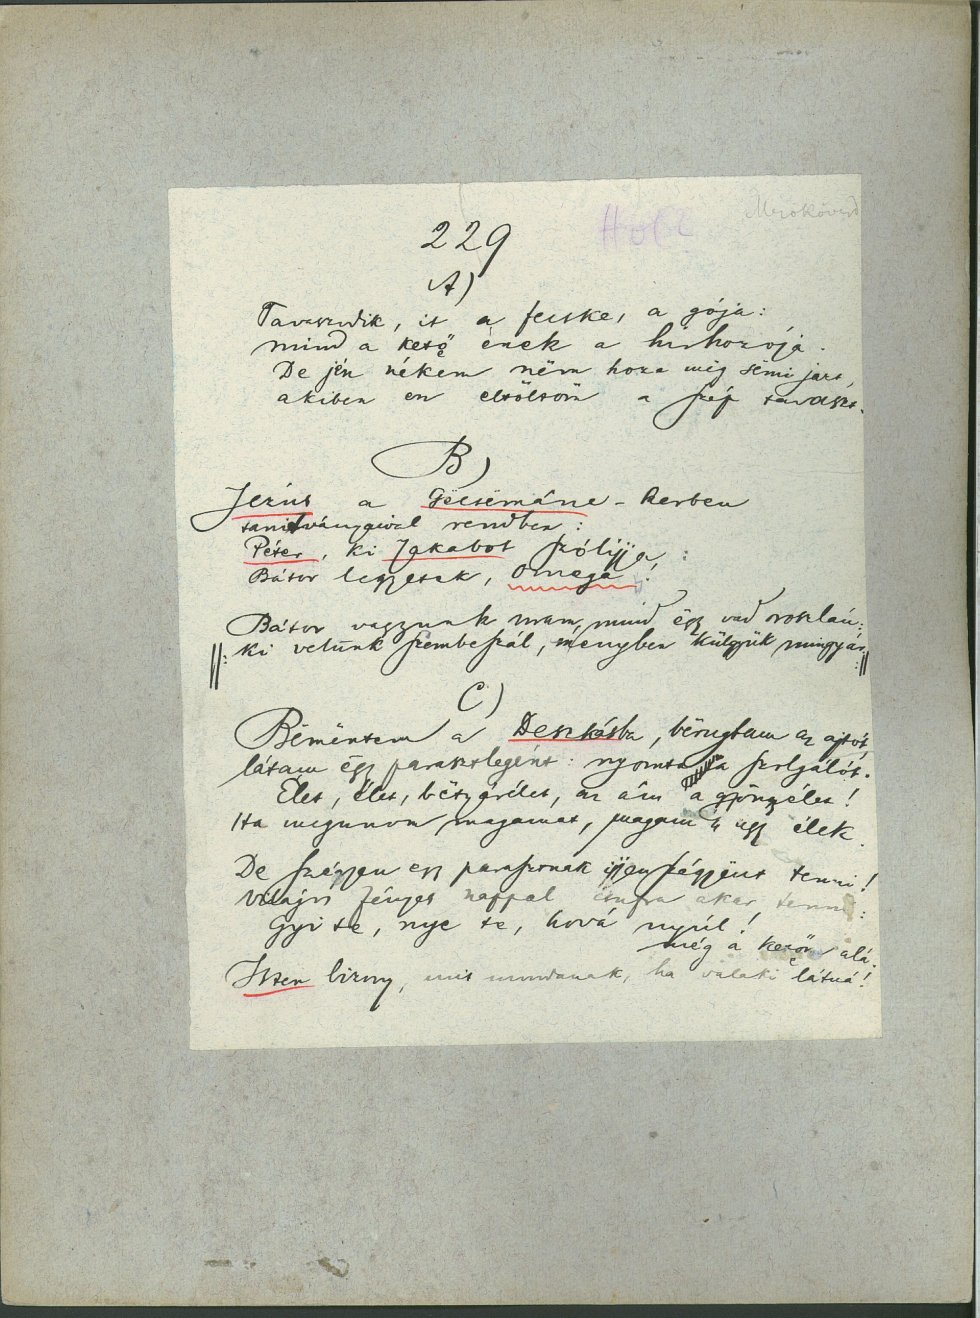 Mezőkövesd
Hol?
229
A)
Tavaszodik, itt a fecske, a gója:
mind a kető ének a hírhozója.
De jén nékem nëm hoza még sëmi jart,
akiben én eltöltöm a szép tavaszt.
B)
Jézus a Gëcsëmáne-kerben
tanitványaival rendben:
Péter, ki Jakabot szólijja:
Bátor legyetek, Omega!
Bátor vagyunk uram, mind ëgy vad oroszlán:
ki velünk szembeszál, menyben küldjük mingyár.
C)
Bëmëntem a Deszkásba, bërugtam az ajtót,
látam ëgy parasztlegént: nyomta a szolgálót.
Élet, élet, bëtyárélet, az ám a gyöngyélet!
Ha megunom magamat, magam is úgy élek.
De szégyen egy parasztnak ijjen szégyent tenni!
Világos fényes nappal csufra akar tenni:
Gyi te, nye te, hová nyúl!
még a kezöm alá:
Isten bizony, mit mondanak, ha valaki látná!